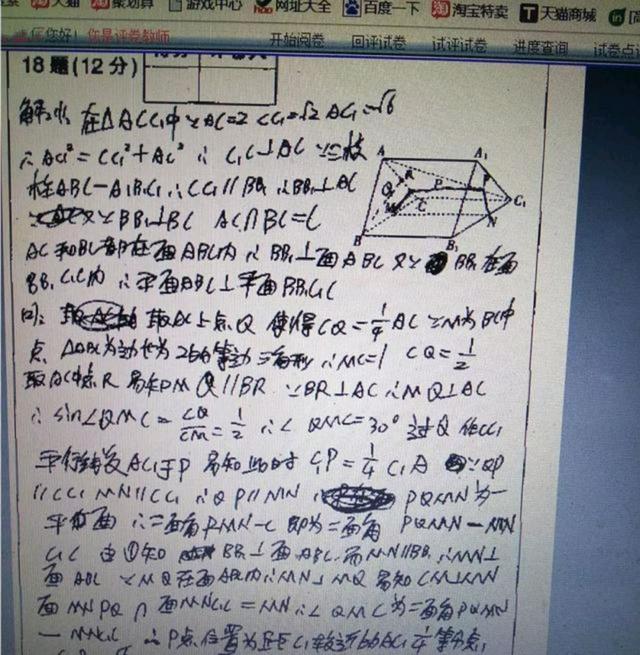 天猫 聚划算 游戏中心 网址大全 百度一下 淘宝特卖 天猫商城
您好! 你是评卷教师 开始阅卷 回评试卷 试评试卷 进度查询
18题(12分)
解: 在△ACC₁中 ∵AC=2 CC₁=√2 AC₁=√6
∴AC₁²=CC₁²+AC² ∴C₁C⊥AC ∵三棱
柱ABC-A₁B₁C₁ ∴CC₁∥BB₁ ∴BB₁⊥AC
又∵BB₁⊥BC AC∩BC=C
AC和BC都在面ABC内 ∴BB₁⊥面ABC 又∵BB₁在面
BB₁C₁C内 ∴平面ABC⊥平面BB₁C₁C
取AC上点Q 使得CQ=1/4AC ∵M为BC中
点 △ABC为边长为2的等边三角形 ∴MC=1 CQ=1/2
取AC中点R 易知 MQ∥BR ∵BR⊥AC ∴MQ⊥AC
∴sin∠QMC=CQ/CM=1/2 ∴∠QMC=30° 过Q作CC₁
平行线交AC₁于P 易知此时C₁P=1/4C₁A ∵QP
∥CC₁ MN∥CC₁ ∴QP∥MN PQMN为一
平面 ∴二面角PMN-C即为二面角PQMN-MN
C₁C 由①知 BB₁⊥面ABC 而MN∥BB₁ ∴MN⊥
面ABC ∵MQ在面ABC内 ∴MN⊥MQ 易知CM⊥MN
面MNPQ∩面MNC₁C=MN ∴∠QMC为二面角PQMN
-MNC₁C ∴P点位置为距C₁较近的AC₁ 1/4等分点
A A₁ R Q P C C₁ M N B B₁